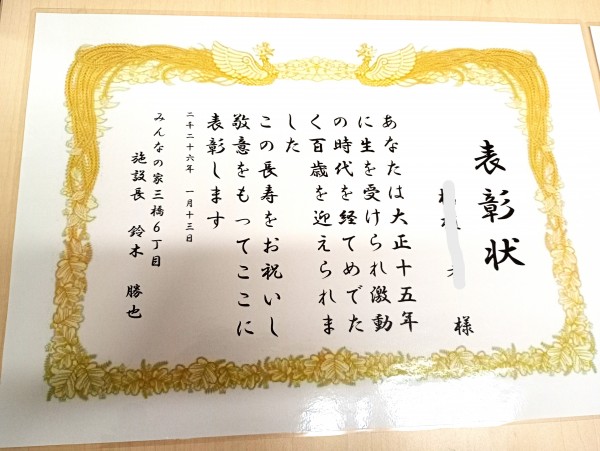 表彰状
様
あなたは大正十五年
に生を受けられ激動
の時代を経てめでた
く百歳を迎えられま
した
この長寿をお祝いし
敬意をもってここに
表彰します
二千二十六年 一月十三日
みんなの家三橋6丁目
施設長 鈴木 勝也